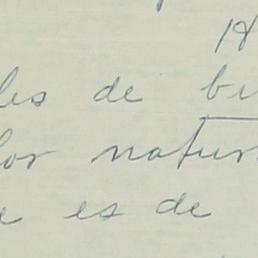 18
les de bu
lor natur
e es de